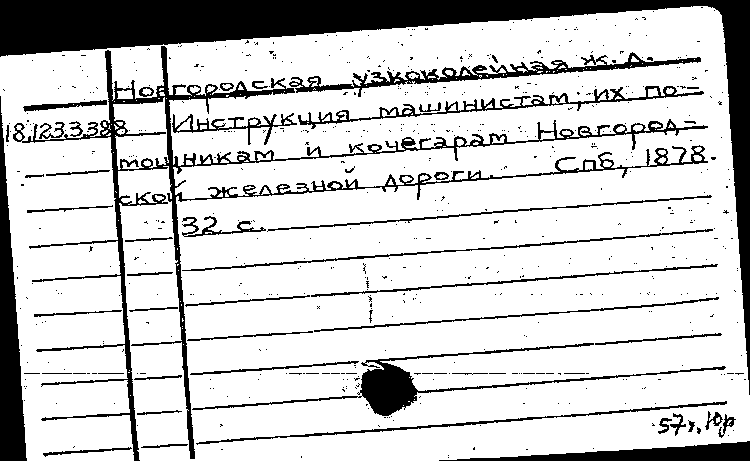 Новгородская узкоколейная ж.д.
18.123.3.388 Инструкция машинистам, их по-
мощникам и кочегарам Новгород-
ской железной дороги. Спб, 1878.
32 с.
57г.